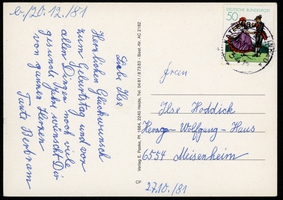 b/20.12./81
Liebe Ilse
Herzlichen Glückwunsch
zum Geburtstag und vor
allen Dingen noch viele
gesunde Jahre wünscht Dir
von ganzem Herzen
Tante Bertram
DEUTSCHE BUNDESPOST
50
Frau
Ilse Roddick
Wolfgang-Haus
6554 Meisenheim
22.10./81